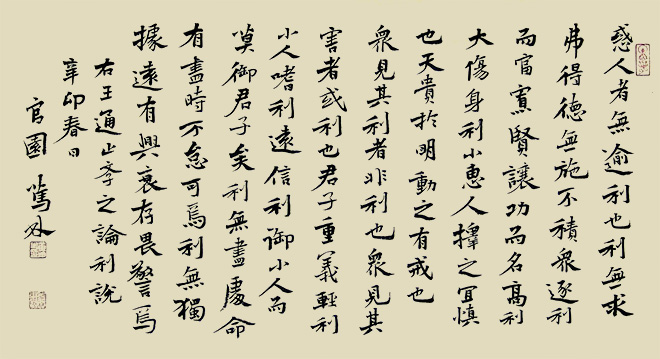 惑人者無逾利也利無求
弗得德無施不積衆逐利
而富寡賢讓功而名高利
大傷身利小惠人擇之宜慎
也天貴於明動之有戒也
衆見其利者非利也衆見其
害者或利也君子重義輕利
小人嗜利遠信利御小人而
莫御君子矣利無盡處命
有盡時不怠可焉利無獨
據遠有興衰存畏警焉
右王通止學之論利說
辛卯春日
官園